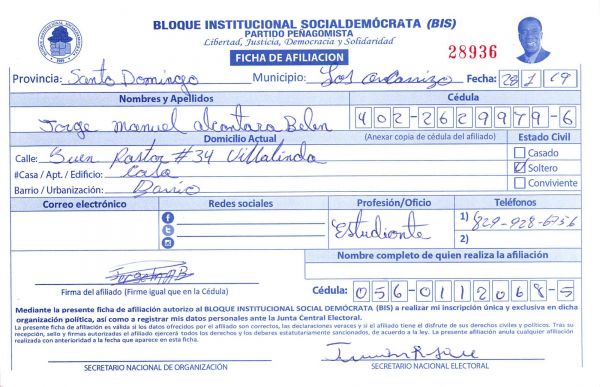 BLOQUE INSTITUCIONAL SOCIALDEMÓCRATA (BIS)
PARTIDO PEÑAGOMISTA
Libertad, Justicia, Democracia y Solidaridad
FICHA DE AFILIACION
28936
Provincia: Santo Domingo Municipio: Los Fecha: 28/1/19
Nombres y Apellidos Cédula
Jorge Manuel Alcantara Belen 402-2629979-6
Domicilio Actual (Anexar copia de cédula del afiliado) Estado Civil
Calle: Buen Pastor #34 Villalinda Casado
#Casa / Apt. / Edificio: Casa Soltero
Barrio / Urbanización: Barrio Conviviente
Correo electrónico Redes sociales Profesión/Oficio Teléfonos
Estudiante 1) 829-928-6756
2)
Nombre completo de quien realiza la afiliación
Firma del afiliado (Firme igual que en la Cédula) Cédula: 056-0112068-5
Mediante la presente ficha de afiliación autorizo al BLOQUE INSTITUCIONAL SOCIAL DEMÓCRATA (BIS) a realizar mi inscripción única y exclusiva en dicha
organización política, así como a registrar mis datos personales ante la Junta Central Electoral.
La presente ficha de afiliación es válida si los datos ofrecidos por el afiliado son correctos, las declaraciones veraces y si el afiliado tiene el disfrute de sus derechos civiles y políticos. Tras su
recepción, sello y firmas autorizadas el afiliado ejercerá todos los derechos y los deberes estatutariamente sancionados, de acuerdo a la ley. La presente afiliación anula cualquier afiliación
realizada con anterioridad a la fecha que aparece en esta ficha.
SECRETARIO NACIONAL DE ORGANIZACIÓN SECRETARIO NACIONAL ELECTORAL